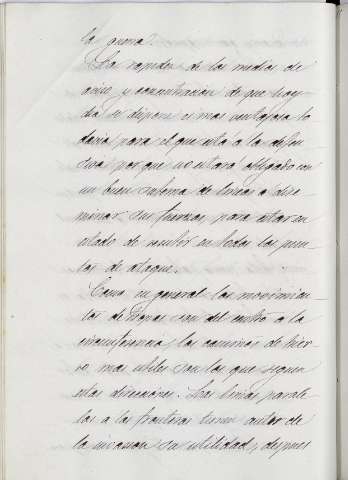 la guerra.
La rapidez de los medios de
aviso y concentracion de que hoy
dia se dispone es mas ventajosa to
davia para el que está a la defen
siva, por que no estará obligado con
un buen sistema de lineas a dise-
minar sus fuerzas, para estar en
estado de resistir en todos los pun-
tos de ataque.
Como en general los movimien-
tos de tropas son del centro a la
circunferencia los caminos de hier-
ro, mas utiles son los que siguen
estas direcciones. Las lineas parale-
las a las fronteras tienen antes de
la invasion su utilidad, despues